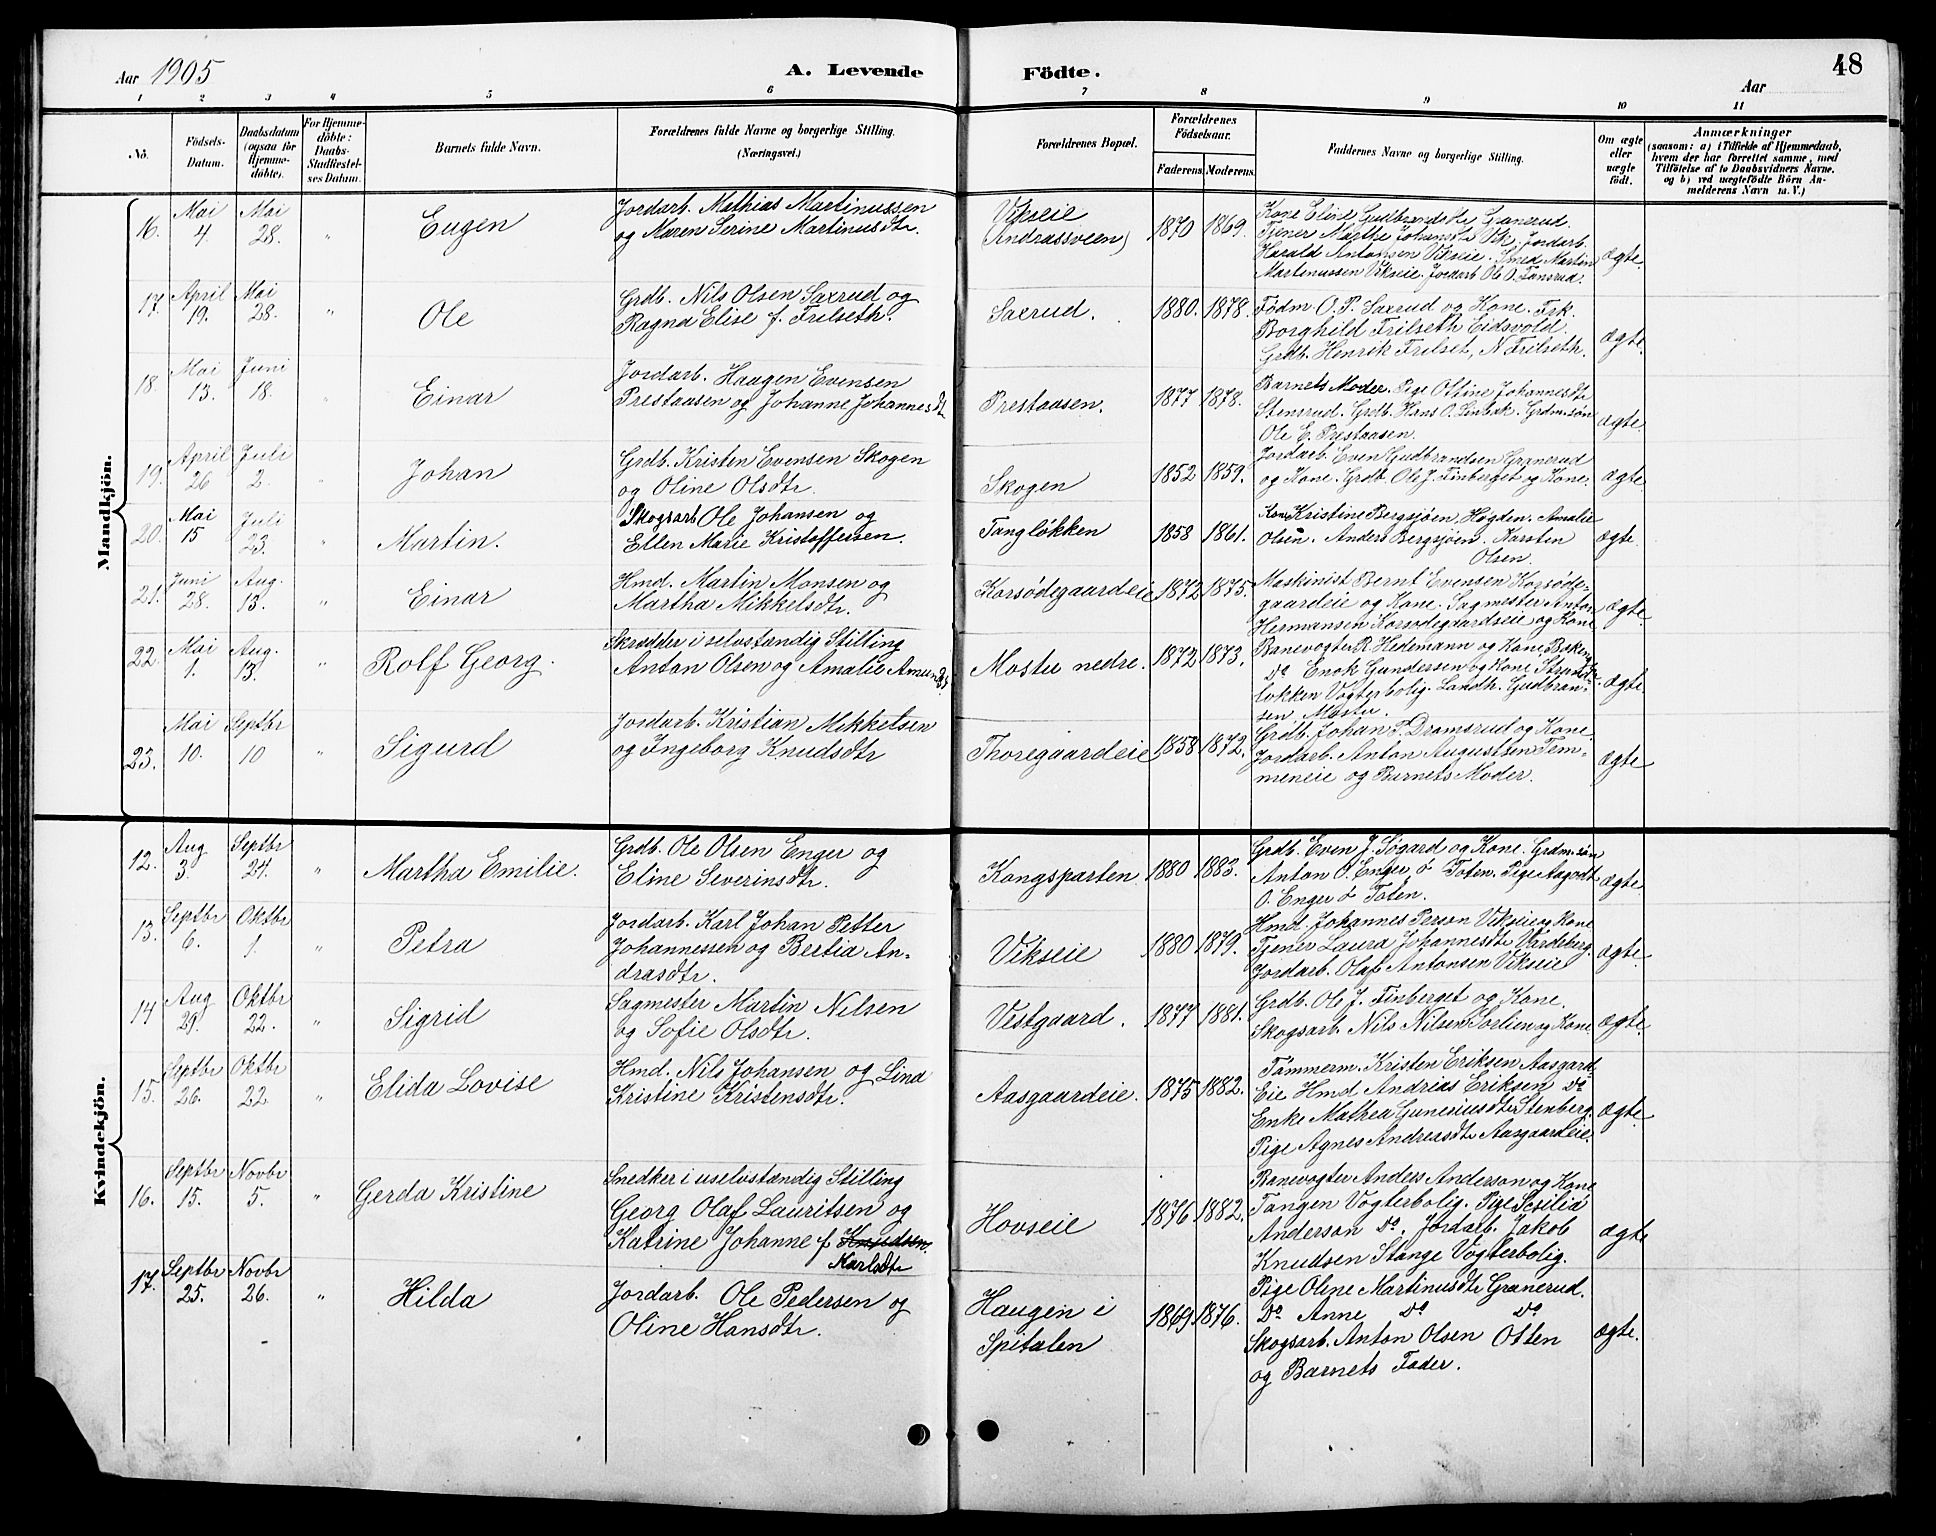 Aar 1905
A. Levende Födte.
Aar
48
1 2 3 4 5 6 7 8 9 10 11
No.
Födsels-Datum.
Daabsdatum (ogsaa for Hjemmedöbte).
For Hjemmedöbte: Daabs-Stadfæstelses Datum.
Barnets fulde Navn.
Forældrenes fulde Navne og borgerlige Stilling.
(Næringsvei.)
Forældrenes Bopæl.
Forældrenes Födselsaar.
Faderens Moderens
Faddernes Navne og borgerlige Stilling.
Om ægte eller uægte födt.
Anmærkninger
(saasom: a) i Tilfælde af Hjemmedaab,
hvem der har forrettet samme, med
Tilföielse af to Daabsvidners Navne.
og b) ved uægtefödte Börn An-
melderens Navn m. V.)
Mandkjön.
16. Mai 4. Mai 28. " Eugen
Jordarb. Mathias Martinussen
og Maren Serine Martinusdtr.
Vikseie
(Andrassveen)
1870 1869.
Kone Elise Gudbrandsdtr Granerud.
Tjener Marthe Johansdtr Vik. Jordarb.
Harald Antonsen Vikseie. Smed Martin
Martinussen Vikseie. Jordarb Ole O. Tansrud.
ægte.
17. April 19. Mai 28. " Ole
Grdb. Nils Olsen Saxrud og
Ragna Elise f. Frilseth.
Saxrud.
1880. 1878.
Födm O. P. Saxrud og Kone. Frk.
Borghild Frilseth Eidsvold.
Grdb. Henrik Frilset, N Frilseth.
ægte.
18. Mai 13. Juni 18. " Einar
Jordarb. Haagen Evensen
Prestaasen og Johanne Johannesdtr
Prestaasen.
1877 1878.
Barnets Moder. Pige Ottine Johannesdtr
Stensrud. Grdb. Hans O. Linbæk. Grdm.sön
Ole E. Prestaasen.
ægte.
19. April 26 Juli 2. " Johan
Grdb. Kristen Evensen Skogen
og Oline Olsdtr.
Skogen
1852 1859.
Jordarb. Even Gudbrandsen Granerud
og Kone. Grdb. Ole J. Finberget og Kone.
ægte
20. Mai 15 Juli 23. " Martin.
Skogsarb Ole Johansen og
Ellen Marie Kristoffersen.
Tangløkken
1858 1861.
Kone Kristine Bergsjöen, Høgden. Amalie
Olsen. Anders Bergsjöen. Karsten
Olsen.
ægte.
21. Juni 28. Aug. 13. " Einar
Hmd. Martin Monsen og
Martha Mikkelsdtr.
Korsödegaardeie
1872 1875.
Maskinist Bernt Evensen Korsöde-
gaardeie og Kone. Sagmester Anton
Hermansen Korsödegaardseie og Kone
ægte.
22. Mai 1. Aug. 13. " Rolf Georg.
Skrædder i selvstændig Stilling
Anton Olsen og Amalie Amundsdtr.
Mostu nedre.
1872 1873.
Banevogter R. Hedemann og Kone Bekens
Do Enok Gundersen og Kone Strand-
løkken Vogterbolig. Landh. Gudbran-
sen Mostu.
ægte.
23. Mai 10. Septbr 10 " Sigurd
Jordarb. Kristian Mikkelsen
og Ingeborg Knudsdtr
Thoregaardeie
1858 1872.
Grdb. Johan P. Dramsrud og Kone
Jordarb. Anton Augustsen Tem-
meneie og Barnets Moder.
ægte
Kvindekjön.
12. Aug 3. Septbr 24. " Martha Emilie.
Grdb. Ole Olsen Enger og
Eline Severinsdtr.
Kongsparten
1880 1883.
Grdb. Even J. Søgard og Kone. Grdm.sön
Anton O. Enger ö Toten. Pige Aagodt
O. Enger ö Toten.
ægte.
13. Septbr 6. Oktbr 1. " Petra
Jordarb. Karl Johan Petter
Johannessen og Bertia An-
drasdtr.
Vikseie
1880 1879.
Hmd. Johannes Person Vikseie og Kone
Tjener Laura Johannesdtr Vardeberg.
Jordarb. Olaf Antonsen Vikseie
ægte.
14 Aug 29. Oktbr 22. " Sigrid
Sagmester Martin Nilsen
og Sofie Olsdtr.
Vestgaard.
1877 1881.
Grdb. Ole J. Finberget og Kone.
Skogsarb. Nils Nilsen Sorlien og Kone
ægte.
15. Septbr 26. Oktbr 22 " Elida Lovise
Hmd. Nils Johansen og Lina
Kristine Kristensdtr.
Aasgaardeie.
1875 1882.
Tømmerm. Kristen Eriksen Aasgard
Eie Hmd Andreas Eriksen Do
Enke Mathea Guneriusdtr Stenberg.
Pige Agnes Andreasdtr Aasgaardeie
ægte.
16. Septbr 15. Novbr 5. " Gerda Kristine
Snedker i uselvstændig Stilling
Georg Olaf Lauritsen og
Katrine Johanne f Knudsen.
Karlsdtr
Hovseie
1876 1882.
Banevogter Anders Anderson og Kone
Tangen Vogterbolig. Pige Sesilia
Anderson Do. Jordarb. Jakob
Knudsen Stange Vogterbolig.
ægte
17. Septbr 25. Novbr 26. " Hilda
Jordarb. Ole Pedersen og
Oline Hansdtr.
Haugen i
Spitalen
1869 1876.
Pige Oline Martinusdtr Granerud.
Do Anne Do Do
Skogsarb. Anton Olsen Otten
og Barnets Fader.
ægte.